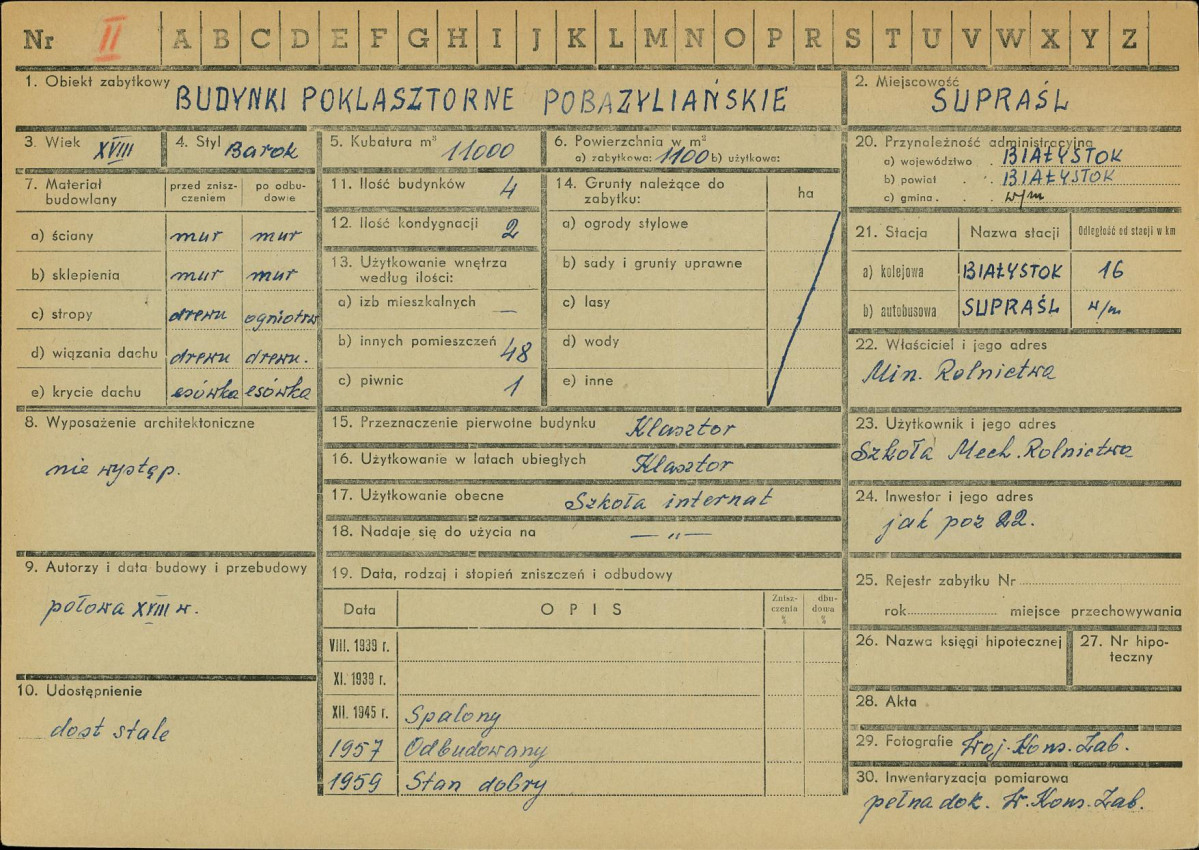 Nr II A B C D E F G H I J K L M N O P R S T U V W X Y Z
1. Obiekt zabytkowy
BUDYNKI POKLASZTORNE POBAZYLIAŃSKIE
2. Miejscowość
SUPRAŚL
3. Wiek XVIII
4. Styl Barok
5. Kubatura m³ 11000
6. Powierzchnia w m²
a) zabytkowa: 1100 b) użytkowa:
7. Materiał budowlany
przed znisz-
czeniem
po odbu-
dowie
a) ściany mur mur
b) sklepienia mur mur
c) stropy drewn ogniotrw
d) wiązania dachu drewn drewn.
e) krycie dachu esówka esówka
8. Wyposażenie architektoniczne
nie występ.
9. Autorzy i data budowy i przebudowy
połowa XVIII w.
10. Udostępnienie
dost stale
11. Ilość budynków 4
12. Ilość kondygnacji 2
13. Użytkowanie wnętrza
według ilości:
a) izb mieszkalnych —
b) innych pomieszczeń 48
c) piwnic 1
14. Grunty należące do
zabytku:
ha
a) ogrody stylowe
b) sady i grunty uprawne
c) lasy
d) wody
e) inne
15. Przeznaczenie pierwotne budynku Klasztor
16. Użytkowanie w latach ubiegłych Klasztor
17. Użytkowanie obecne Szkoła internat
18. Nadaje się do użycia na — „ —
19. Data, rodzaj i stopień zniszczeń i odbudowy
Data OPIS
Znisz-
czenia
%
dbu-
dowa
%
VIII. 1939 r.
XI. 1939 r.
XII. 1945 r. Spalony
1957 Odbudowany
1959 Stan dobry
20. Przynoleżność administracyjna
a) województwo BIAŁYSTOK
b) powiat BIAŁYSTOK
c) gmina w/m
21. Stacja Nazwa stacji Odległość od stacji w km
a) kolejowa BIAŁYSTOK 16
b) autobusowa SUPRAŚL w/m
22. Właściciel i jego adres
Min. Rolnictwa
23. Użytkownik i jego adres
Szkoła Mech. Rolnictwa
24. Inwestor i jego adres
jak poz 22.
25. Rejestr zabytku Nr
rok miejsce przechowywania
26. Nazwa księgi hipotecznej
27. Nr hipo-
teczny
28. Akta
29. Fotografie Woj. Kons. Zab.
30. Inwentaryzacja pomiarowa
pełna dok. W. Kons. Zab.